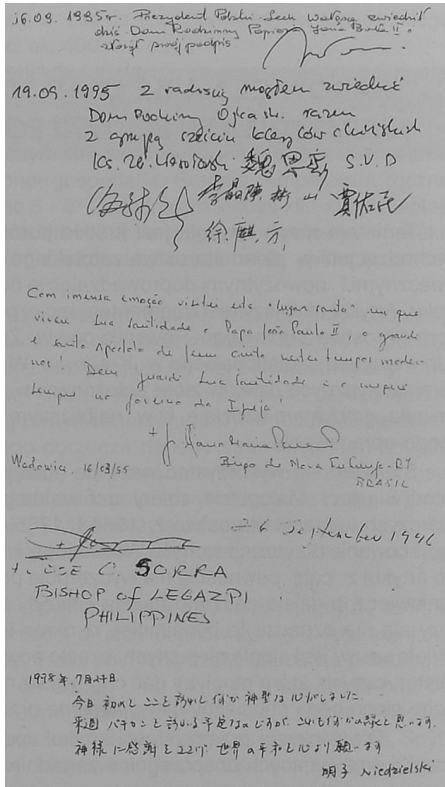 16.09.1995r. Prezydent Polski Lech Wałęsa zwiedził
dziś Dom Rodzinny Papieża Jana Pawła II i
złożył swój podpis
19.09.1995 Z radością mogłem zwiedzić
Dom Rodzinny Ojca Św. razem
z grupą sześciu kleryków chińskich
Ks. 魏思 S.V.D
李晶 山 賈佑民
徐麒方
Com imensa emoção visitei este "lugar santo" em que
viveu Sua Santidade o Papa João Paulo II, o grande
e santo Apóstolo de Jesus Cristo nestes tempos moder
nos. Deus guarde Sua Santidade e o inspire
sempre no governo da Igreja
Bispo de Nova Friburgo-RJ
Wadowice, 16/03/95
BRASIL
26 September 1996
+ JOSE C. SORRA
BISHOP of LEGAZPI
PHILIPPINES
1998年.7月27日
今日初めてここを訪れて何か神聖な心がしました
来週バチカンを訪れる予定なのですが、これも何かの縁と思います.
神様に感謝をささげ 世界の平和を心より願います
明子 Niedzielski